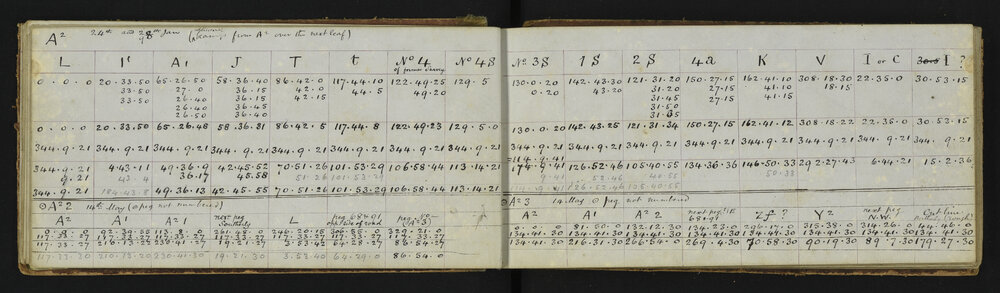 A² 24th and 28th Jan ( from A² over the next leaf)
L 1' A1 J T t No 4 No 4S
of former Survey
0.0.0 20.33.50 65.26.50 58.36.40 86.42.0 117.44.10 122.49.25 129.5
33.50 27.0 36.15 42.0 44.5 49.20
33.50 26.40 36.15 42.15
26.40 36.45
26.50 36.40
0.0.0 20.33.50 65.26.48 58.36.31 86.42.5 117.44.8 122.49.23 129.5.0
344.9.21 344.9.21 344.9.21 344.9.21 344.9.21 344.9.21 344.9.21 344.9.21
344.9.21 4.43.11 49.36.9 42.45.52 70.51.26 101.53.29 106.58.44 113.14.21
9.21 43.4 36.17 45.58 51.26 101.53.29
344.9.21 184.43.8 49.36.13 42.45.55 70.51.26 101.53.29 106.58.44 113.14.21
⊙A²2 14th May (⊙ peg not numbered)
A² A' A²1 next peg Southerly L peg 68&91 outside of road peg
0.0 92.39.55 113.8.0 261.48.0 246.20.15 306.55.0 329.21.0
117.33.27 117.33.27 117.33.27 117.33.27 117.33.27 117.33.27 117.33.27
117.33.27 210.13.22 230.41.27 19.21.27 3.53.42 64.28.27 86.54.27
117.33.20 210.13.20 230.41.30 19.21.30 3.53.40 64.29.0 86.54.0
No 3S 1S 2S 4a K V I or C I?
130.0.20 142.43.30 121.31.20 150.27.15 162.41.10 308.18.30 22.35.0 30.53.15
0.20 43.20 31.20 27.15 41.10 18.15
31.45 27.15 41.15
31.50
31.35
130.0.20 142.43.25 121.31.34 150.27.15 162.41.12 308.18.22 22.35.0 30.53.15
344.9.21 344.9.21 344.9.21 344.9.21 344.9.21 344.9.21 344.9.21 344.9.21
114.9.41
174.9.41 126.52.46 105.40.55 134.36.36 146.50.33 292.27.43 6.44.21 15.2.36
9.41 52.46 40.55 50.33
114.9.41 126.52.46 105.40.55
⊙A²3 14 May ⊙ peg not numbered
A² A' A²2 next peg 68&91 Zf? Y² next peg N.W.
0.0.0 81.50.0 132.12.30 134.23.0 296.17.0 315.38.0 314.26.0 44.46.0
134.41.30 134.41.30 134.41.30 134.41.30 134.41.30 134.41.30 134.41.30 134.41.30
134.41.30 216.31.30 266.54.0 269.4.30 70.58.30 90.19.30 89.7.30 179.27.30